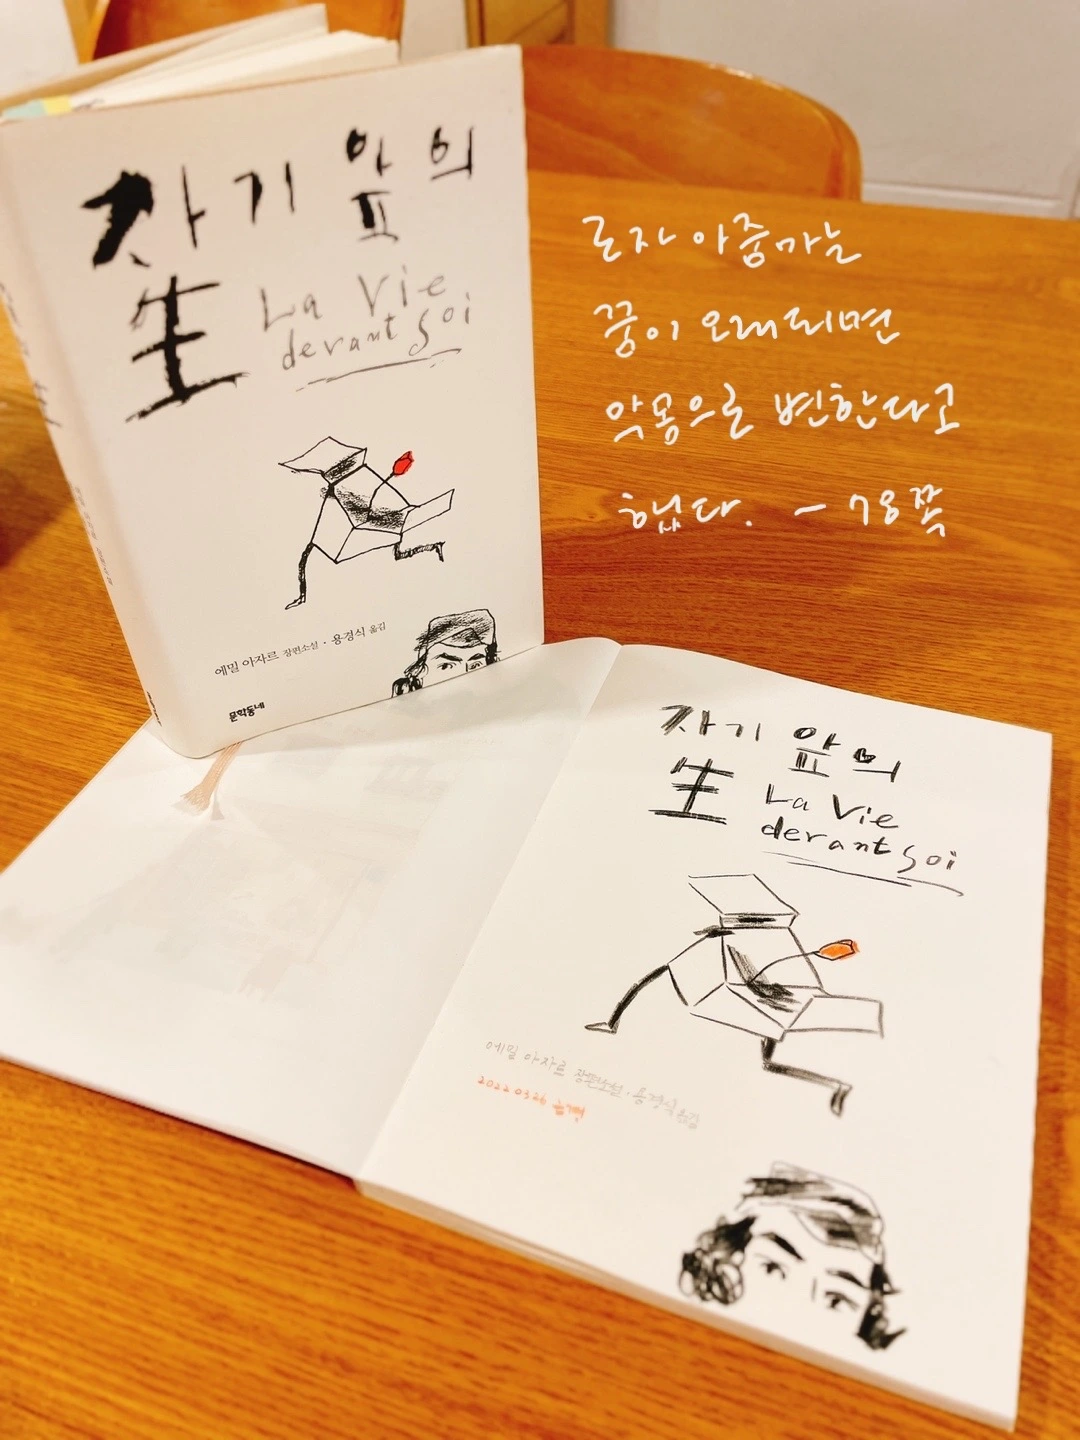 자기 앞의
生
La Vie
devant Soi
에밀 아자르 장편소설 · 용경식 옮김
문학동네
로자 아줌마는
꿈이 오래되면
악몽으로 변한다고
했다. - 78쪽
자기 앞의
生
La Vie
devant Soi
에밀 아자르 장편소설 · 용경식 옮김
2022 03 26